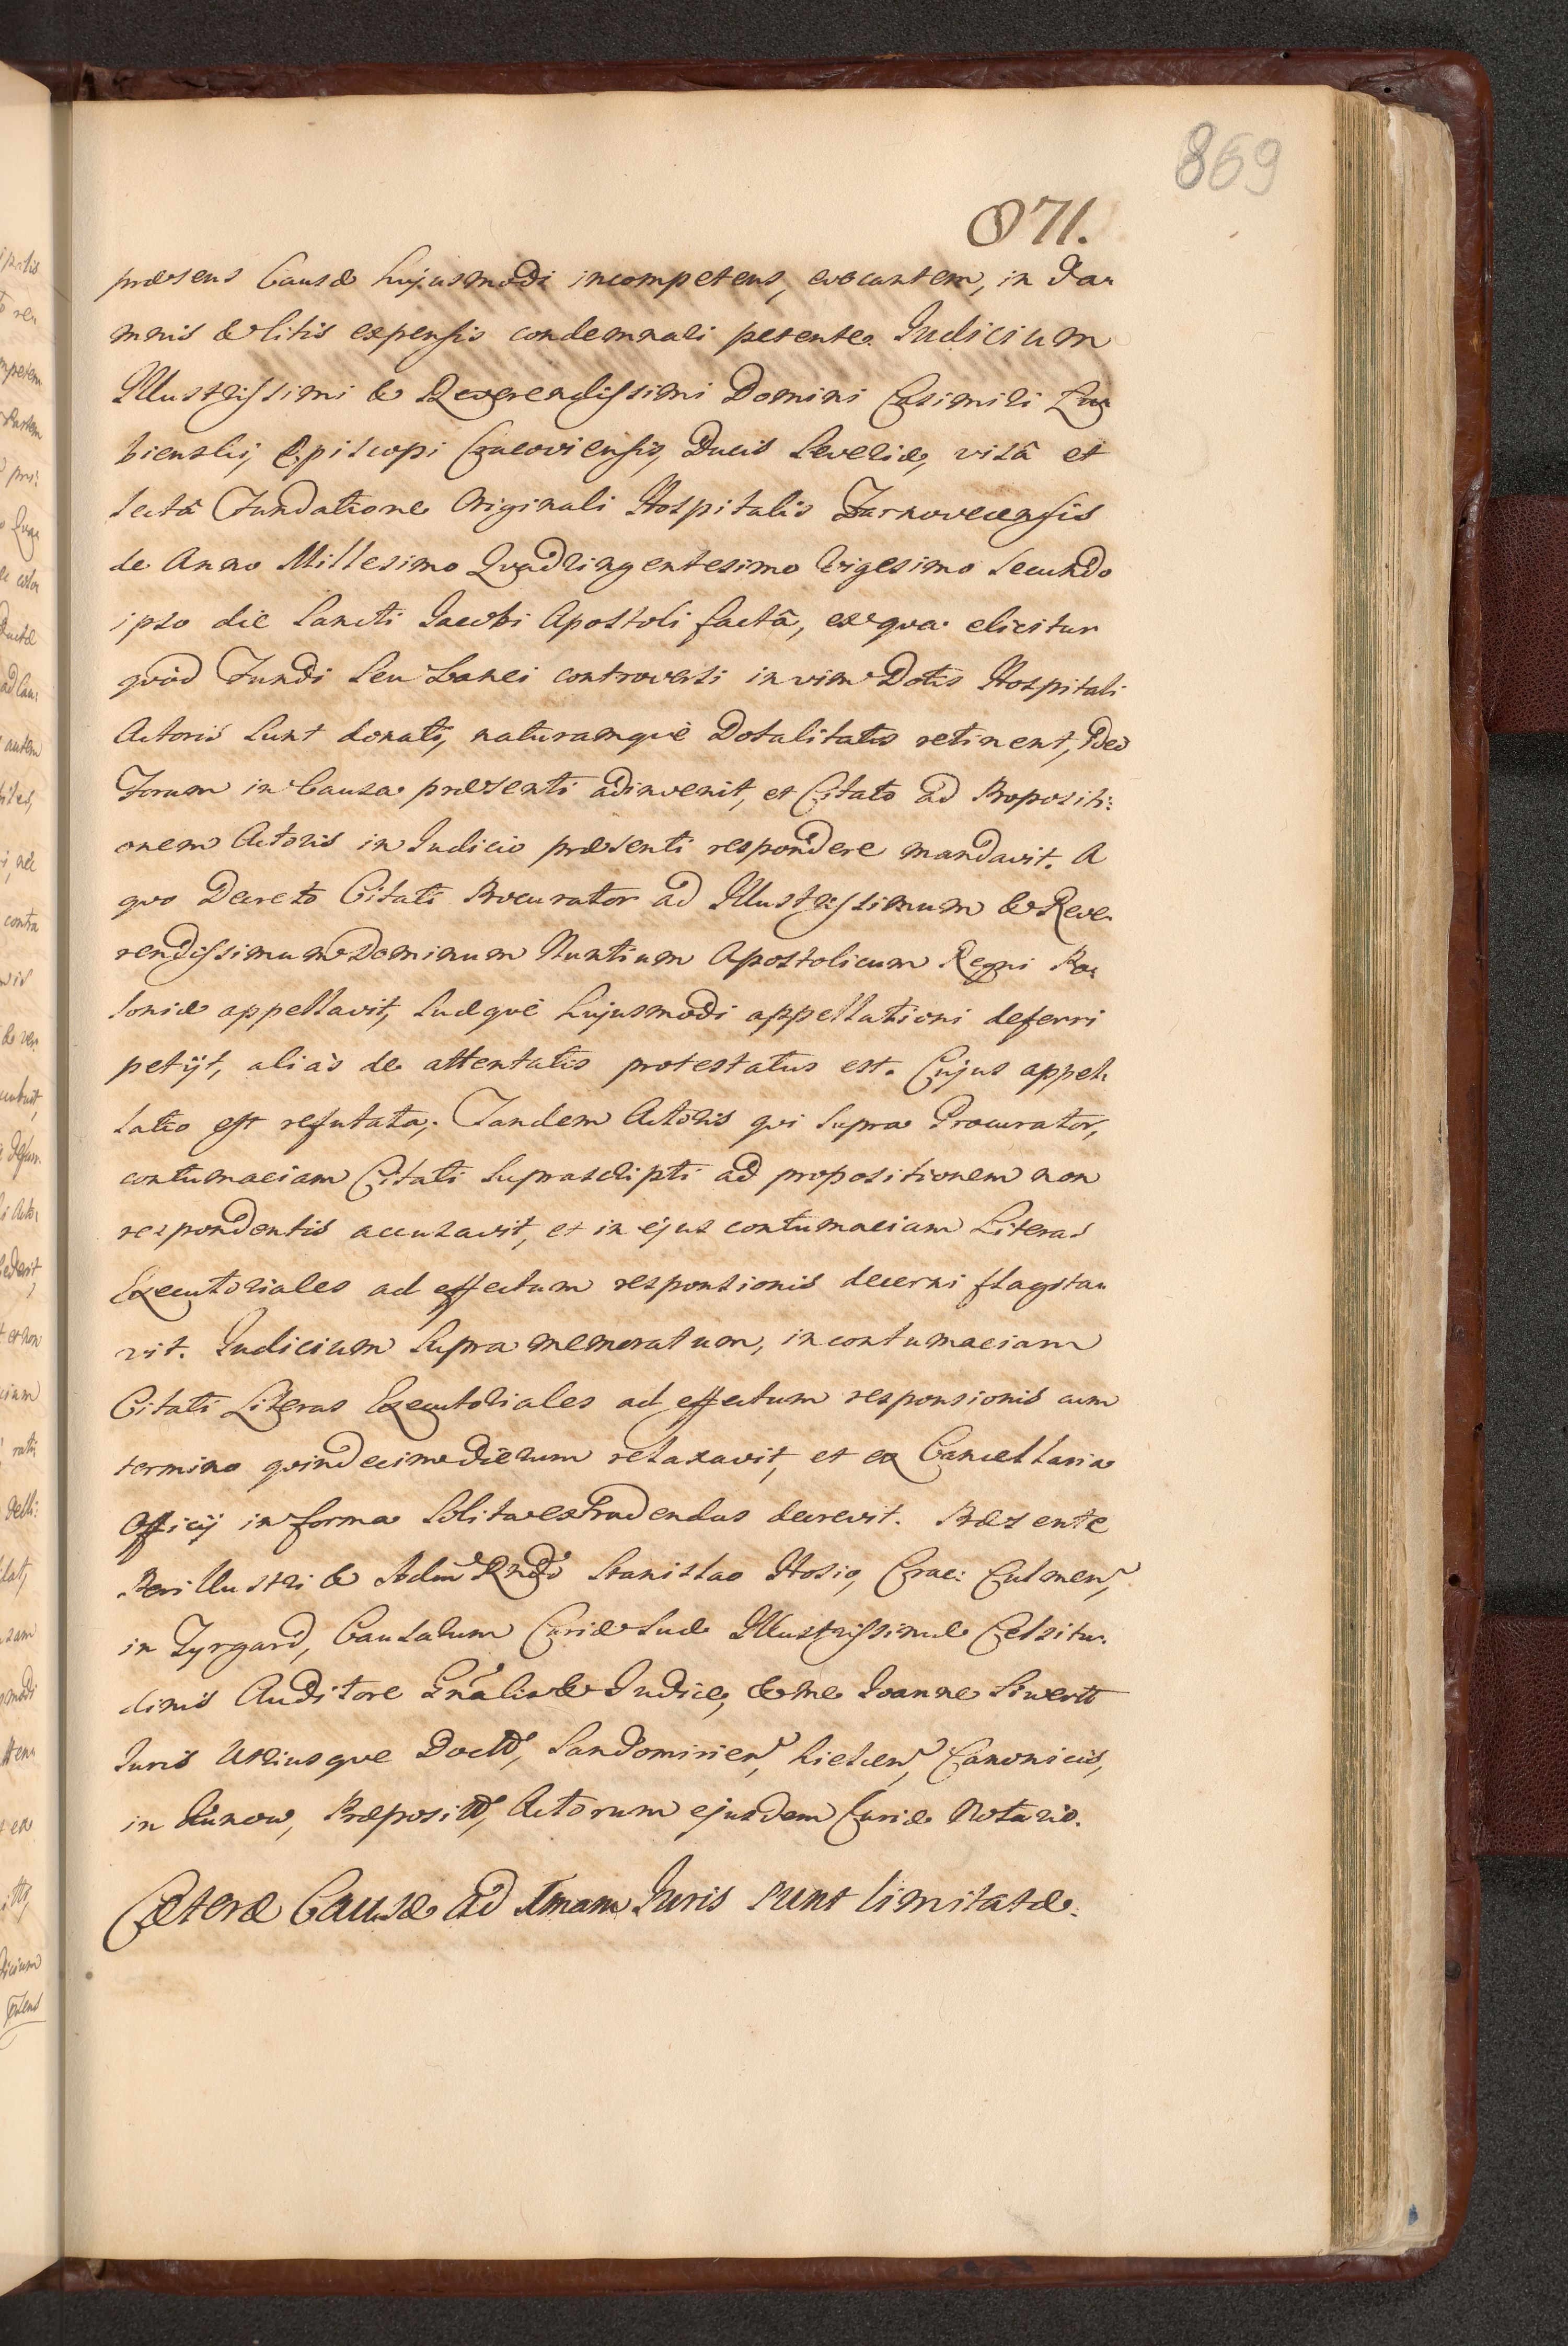 869
871.
præsens Causæ hujusmodi incompetens, evocantem, in da-
mnis & litis expensis condemnari petente. Judicium
Illustrissimi & Reverendissimi Domini Casimiri Łu-
bienski, Episcopi Cracoviensis, Ducis Severiæ, visâ et
lectâ Fundatione Originali Hospitalis Żarnovecensis
de Anno Millesimo Quadringentesimo Vigesimo Secundo
ipso die Sancti Jacobi Apostoli factâ, ex qva elicitur
qvod Fundi seu Lanei controversi in vim Dotis Hospitali
Actoris sunt donati, naturamqve Dotalitatis retinent, Ideo
Forum in Causa præsenti adinvenit, et Citato ad Propositi:
onem Actoris in Judicio præsenti respondere mandavit. A
qvo Decreto Citati Procurator ad Illustrissimum & Reve-
rendissimum Dominum Nuntium Apostolicum Regni Po-
loniæ appellavit, suæqve hujusmodi appellationi deferri
petijt, aliàs de attentatis protestatus est. Cujus appel-
latio est refutata; Tandem Actoris qvi supra Procurator,
contumaciam Citati suprascripti ad propositionem non
respondentis accusavit, et in ejus contumaciam Literas
Executoriales ad effectum responsionis decerni flagita-
vit. Judicium supra memoratum, in contumaciam
Citati Literas Executoriales ad effectum responsionis cum
termino qvindecim dierum relaxavit, et ex Cancellaria
Officij in forma solita extradendas decrevit. Præsente
Perillustri & Adm Rndo Stanislao Hosio, Crac: Culmen,
in Tyrgard, Causarum Curiæ suæ Illustrissimæ Celsitu-
dinis Auditore Gnali & Judice, & me Joanne Siwert
Juris Utriusque Doctore, Sandomirien, Kielcen, Canonico,
in Præposito, Actorum ejusdem Curiæ Notario.
Cæteræ Causæ ad Imam Juris sunt limitatæ.